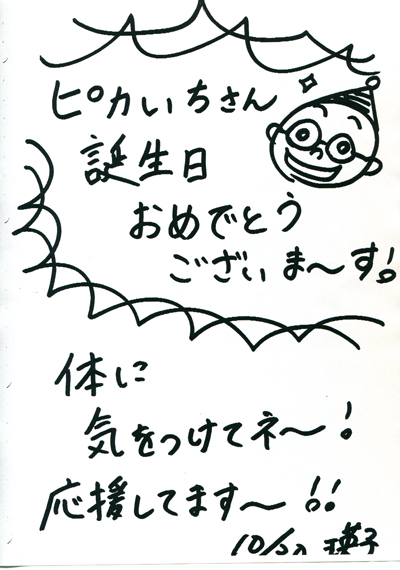 ピカいちさん
誕生日
おめでとう
ございま〜す!
体に
気をつけてネ〜!
応援してます〜!!